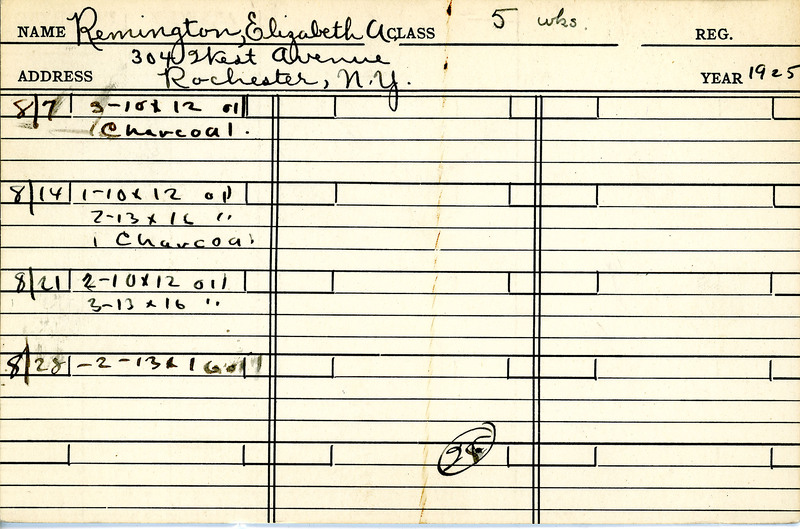 NAME Remington, Elizabeth A. CLASS 5 wks. REG.
304 West Avenue
ADDRESS Rochester, N.Y. YEAR 1925
8/7 3-10x12 oil
1 Charcoal.
8/14 1-10x12 oil
2-13x16 "
1 Charcoal
8/21 2-10x12 oil
3-13x16 "
8/28 -2-13x16 oil